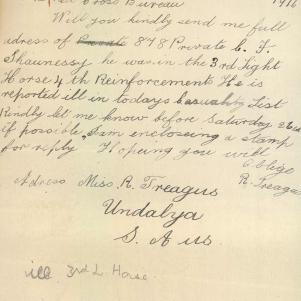 Cross Bureau 1916
Will you kindly send me full
adress of Private 878 Private C. F.
Shaunessy he was in the 3rd Light
Horse 4th Reinforcement He is
reported ill in todays Casualty List
Kindly let me know before Saturday 26th
if possible, I am encloseing a stamp
for reply Hopeing you will
Oblige
Adress Miss. R. Treagus R. Treagus
Undalya
S. Aus.
ill 3rd L. Horse.